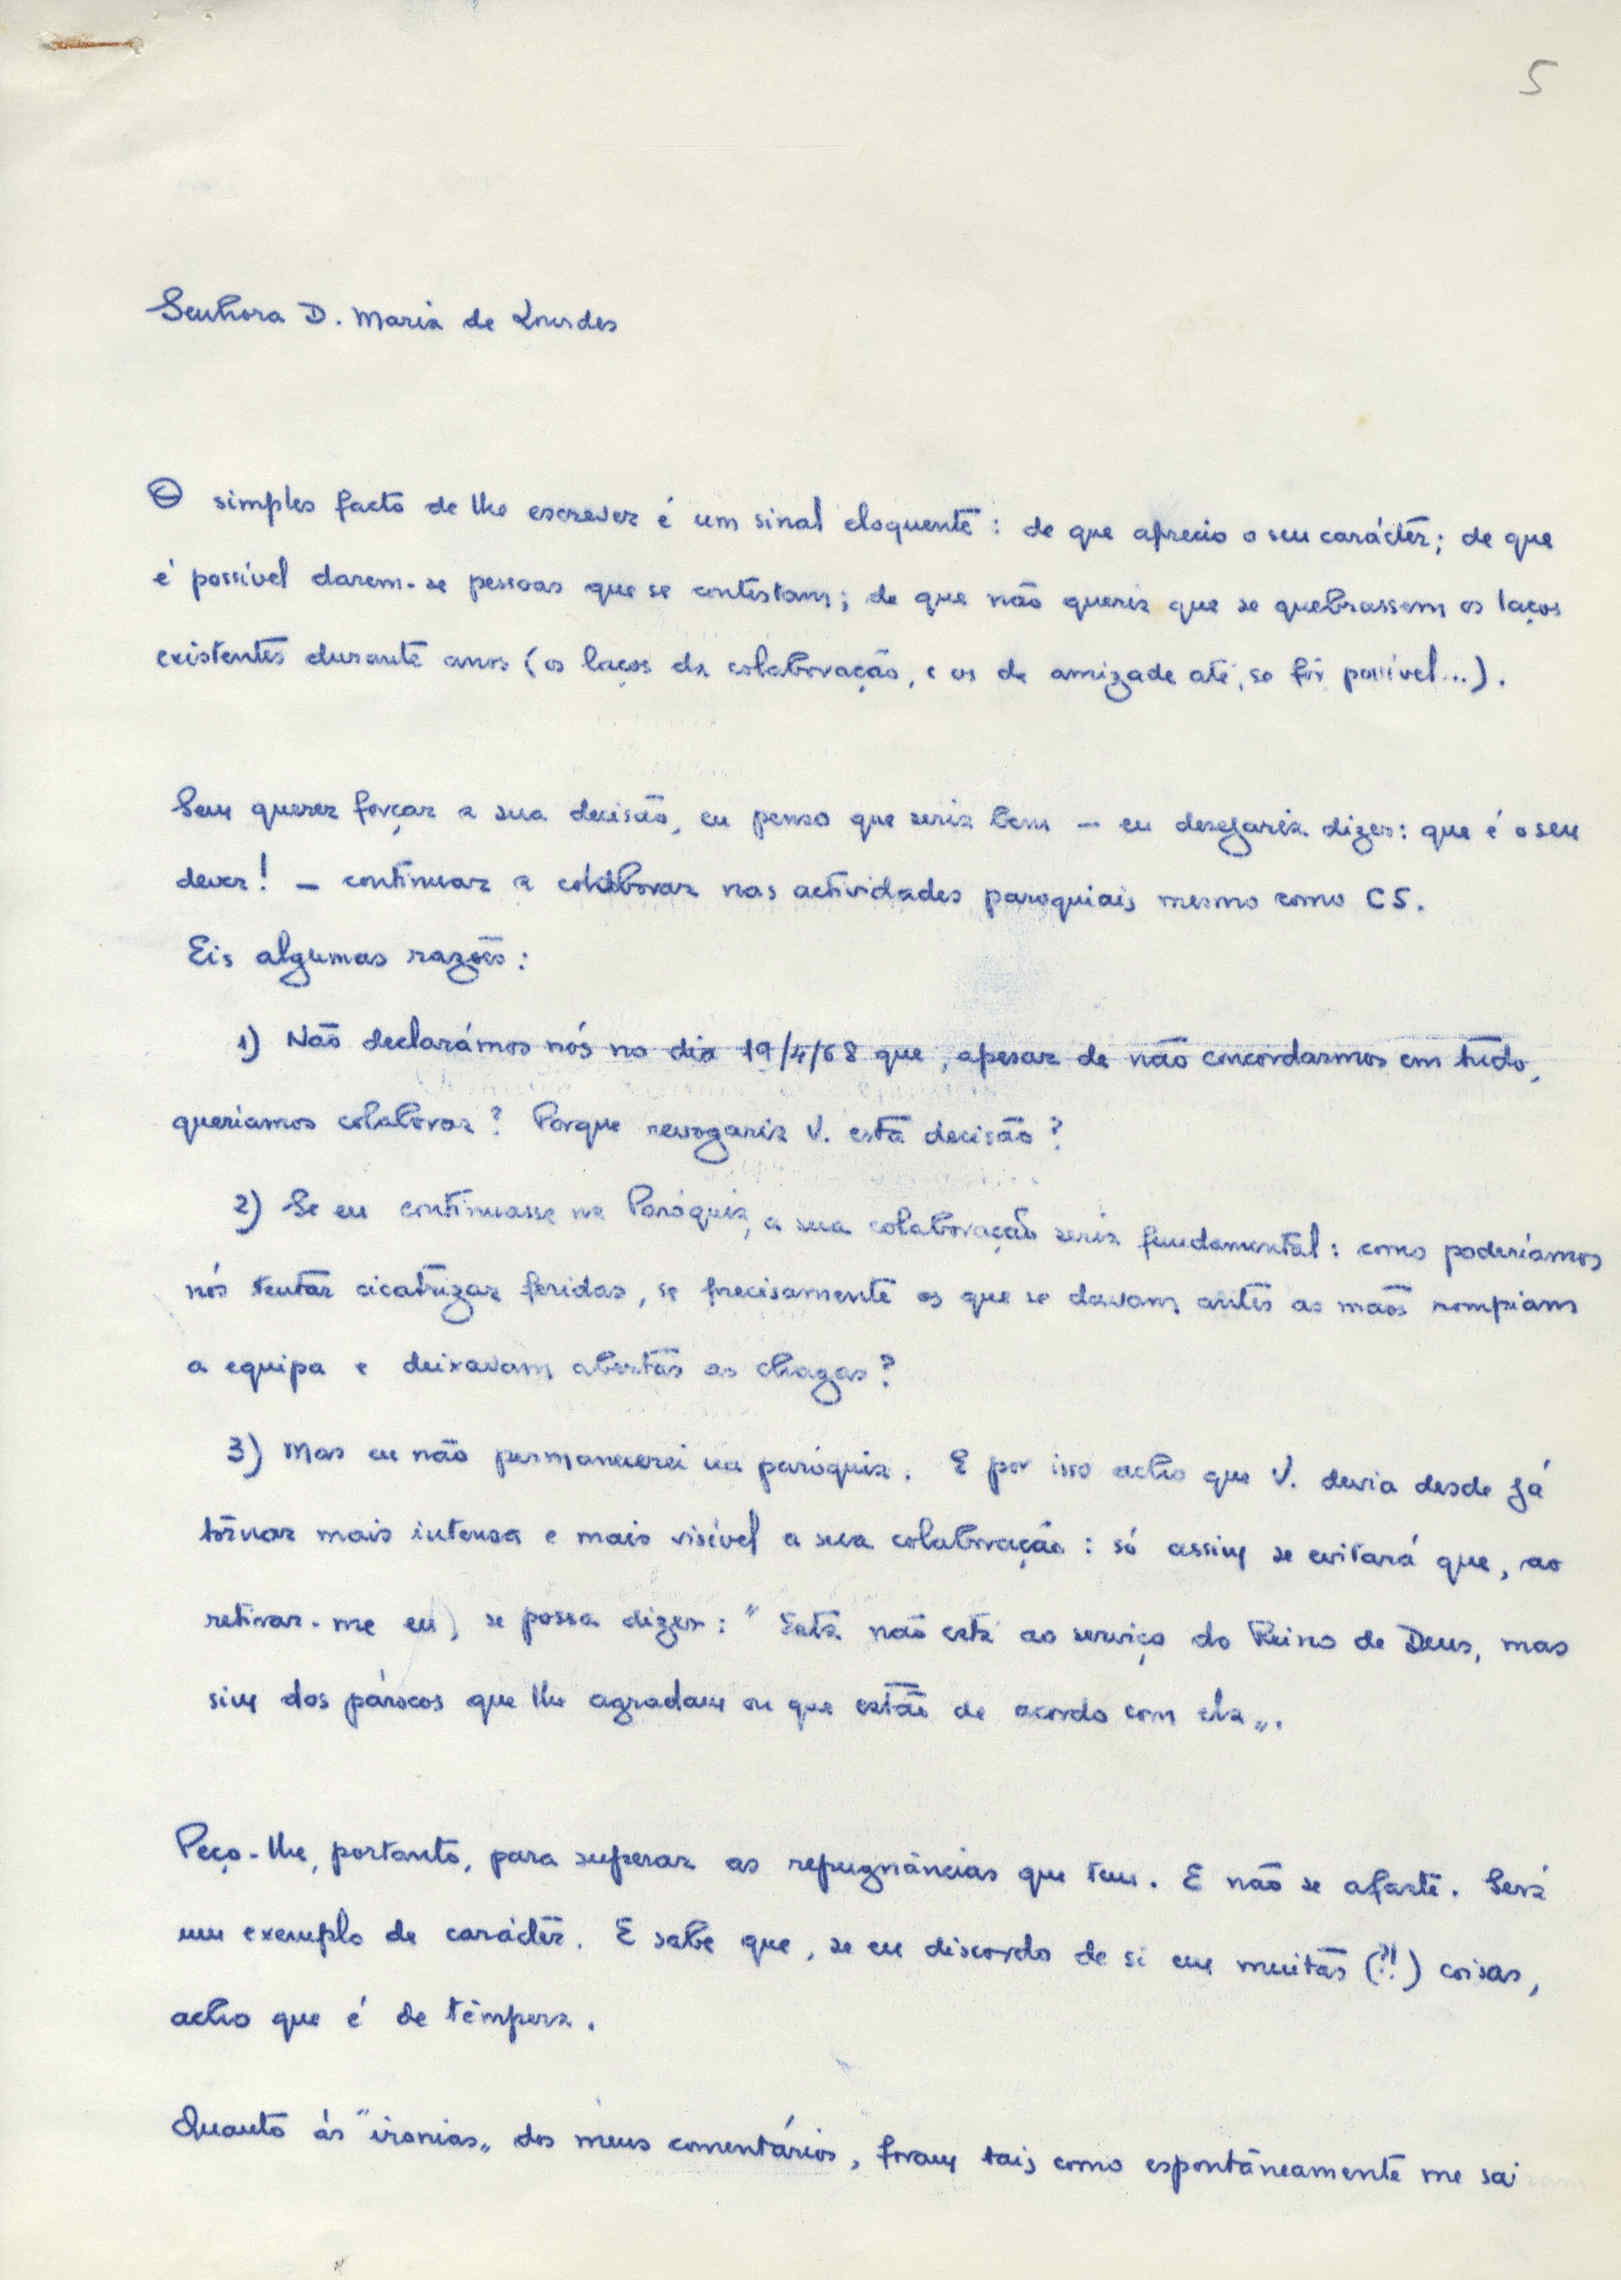 5
Senhora D. Maria de Lourdes
O simples facto de lhe escrever é um sinal eloquente: de que aprecio o seu carácter; de que
é possível darem-se pessoas que se contestam; de que não queria que se quebrassem os laços
existentes durante anos (os laços da colaboração, e os de amizade até, se fôr possível...).
Sem querer forçar a sua decisão, eu penso que seria bem – eu desejaria dizer: que é o seu
dever! – continuar a colaborar nas actividades paroquiais mesmo como CS.
Eis algumas razões:
1) Não declarámos nós no dia 19/4/68 que, apesar de não concordarmos em tudo,
queríamos colaborar? Porque revogaria V. esta decisão?
2) Se eu continuasse na Paróquia, a sua colaboração seria fundamental: como poderíamos
nós tentar cicatrizar feridas, se precisamente os que se davam antes as mãos rompiam
a equipa e deixavam abertas as chagas?
3) Mas eu não permanecerei na paróquia. E por isso acho que V. devia desde já
tornar mais intensa e mais visível a sua colaboração: só assim se evitará que, ao
retirar-me eu, se possa dizer: "Esta não está ao serviço do Reino de Deus, mas
sim dos párocos que lhe agradam ou que estão de acordo com ela".
Peço-lhe, portanto, para superar as repugnâncias que tem. E não se afaste. Será
um exemplo de carácter. E sabe que, se eu discordo de si em muitas (?!) coisas,
acho que é de têmpera.
Quanto às "ironias" dos meus comentários, foram tais como espontâneamente me saíram